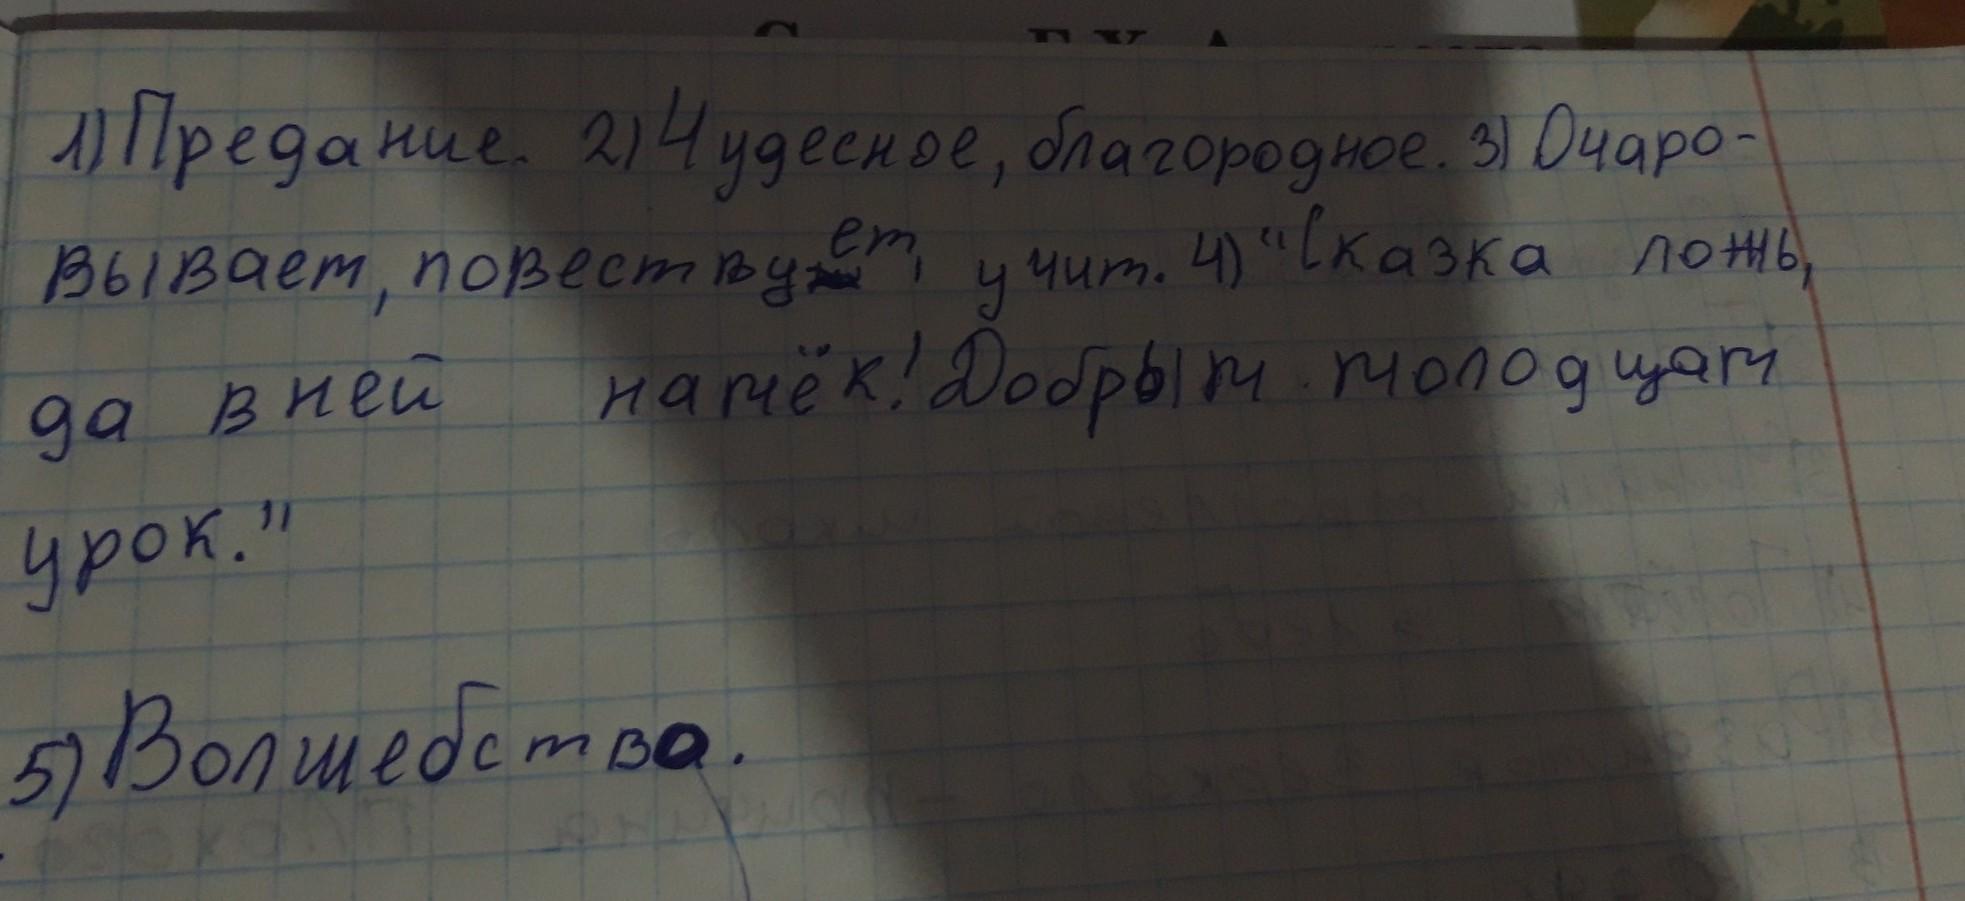 1) Предание. 2) Чудесное, благородное. 3) Очаро-
вывает, повествует, учит. 4) "Сказка ложь,
да в ней намёк! Добрым молодцам
урок."
5) Волшебство.